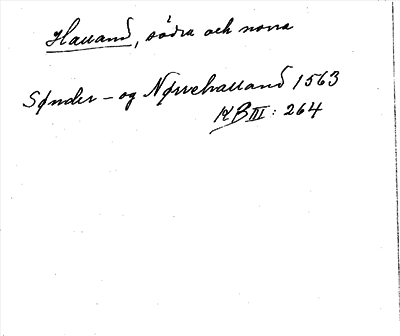 Halland, södra och norra
Sønder- og Nørrehalland 1563
KB III: 264